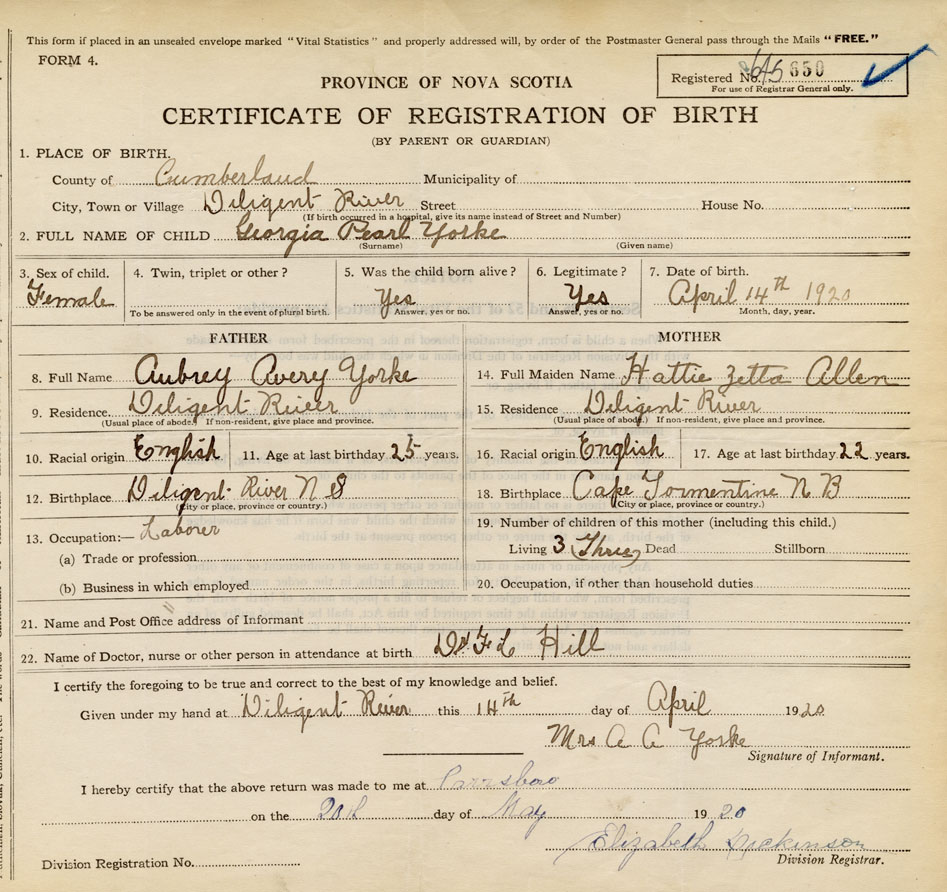 This form if placed in an unsealed envelope marked "Vital Statistics" and properly addressed will, by order of the Postmaster General pass through the Mails "FREE."
FORM 4.
Registered No. 650
For use of Registrar General only.
PROVINCE OF NOVA SCOTIA
CERTIFICATE OF REGISTRATION OF BIRTH
(BY PARENT OR GUARDIAN)
1. PLACE OF BIRTH.
County of Cumberland Municipality of
City, Town or Village Diligent River Street House No.
(If birth occurred in a hospital, give its name instead of Street and Number)
2. FULL NAME OF CHILD Georgia Pearl Yorke
(Surname) (Given name)
3. Sex of child. 4. Twin, triplet or other? 5. Was the child born alive? 6. Legitimate? 7. Date of birth.
Female Yes Yes April 14th 1920
To be answered only in the event of plural birth. Answer, yes or no. Answer, yes or no. Month, day, year.
FATHER
8. Full Name Aubrey Avery Yorke
9. Residence. Diligent River
(Usual place of abode.) If non-resident, give place and province.
10. Racial origin English 11. Age at last birthday 25 years.
12. Birthplace Diligent River N S
(City or place, province or country.)
13. Occupation:— Laborer
(a) Trade or profession
(b) Business in which employed
MOTHER
14. Full Maiden Name Hattie Zetta Allen
15. Residence Diligent River
(Usual place of abode.) If non-resident, give place and province.
16. Racial origin English 17. Age at last birthday 22 years.
18. Birthplace Cape Tormentine N B
(City or place, province or country.)
19. Number of children of this mother (including this child.)
Living 3 (Three) Dead Stillborn
20. Occupation, if other than household duties
21. Name and Post Office address of Informant
22. Name of Doctor, nurse or other person in attendance at birth Dr F L Hill
I certify the foregoing to be true and correct to the best of my knowledge and belief.
Given under my hand at Diligent River this 14th day of April 1920
Mrs A A Yorke
Signature of Informant.
I hereby certify that the above return was made to me at Parrsboro
on the 20th day of May 1920
Elizabeth Dickinson
Division Registrar.
Division Registration No.